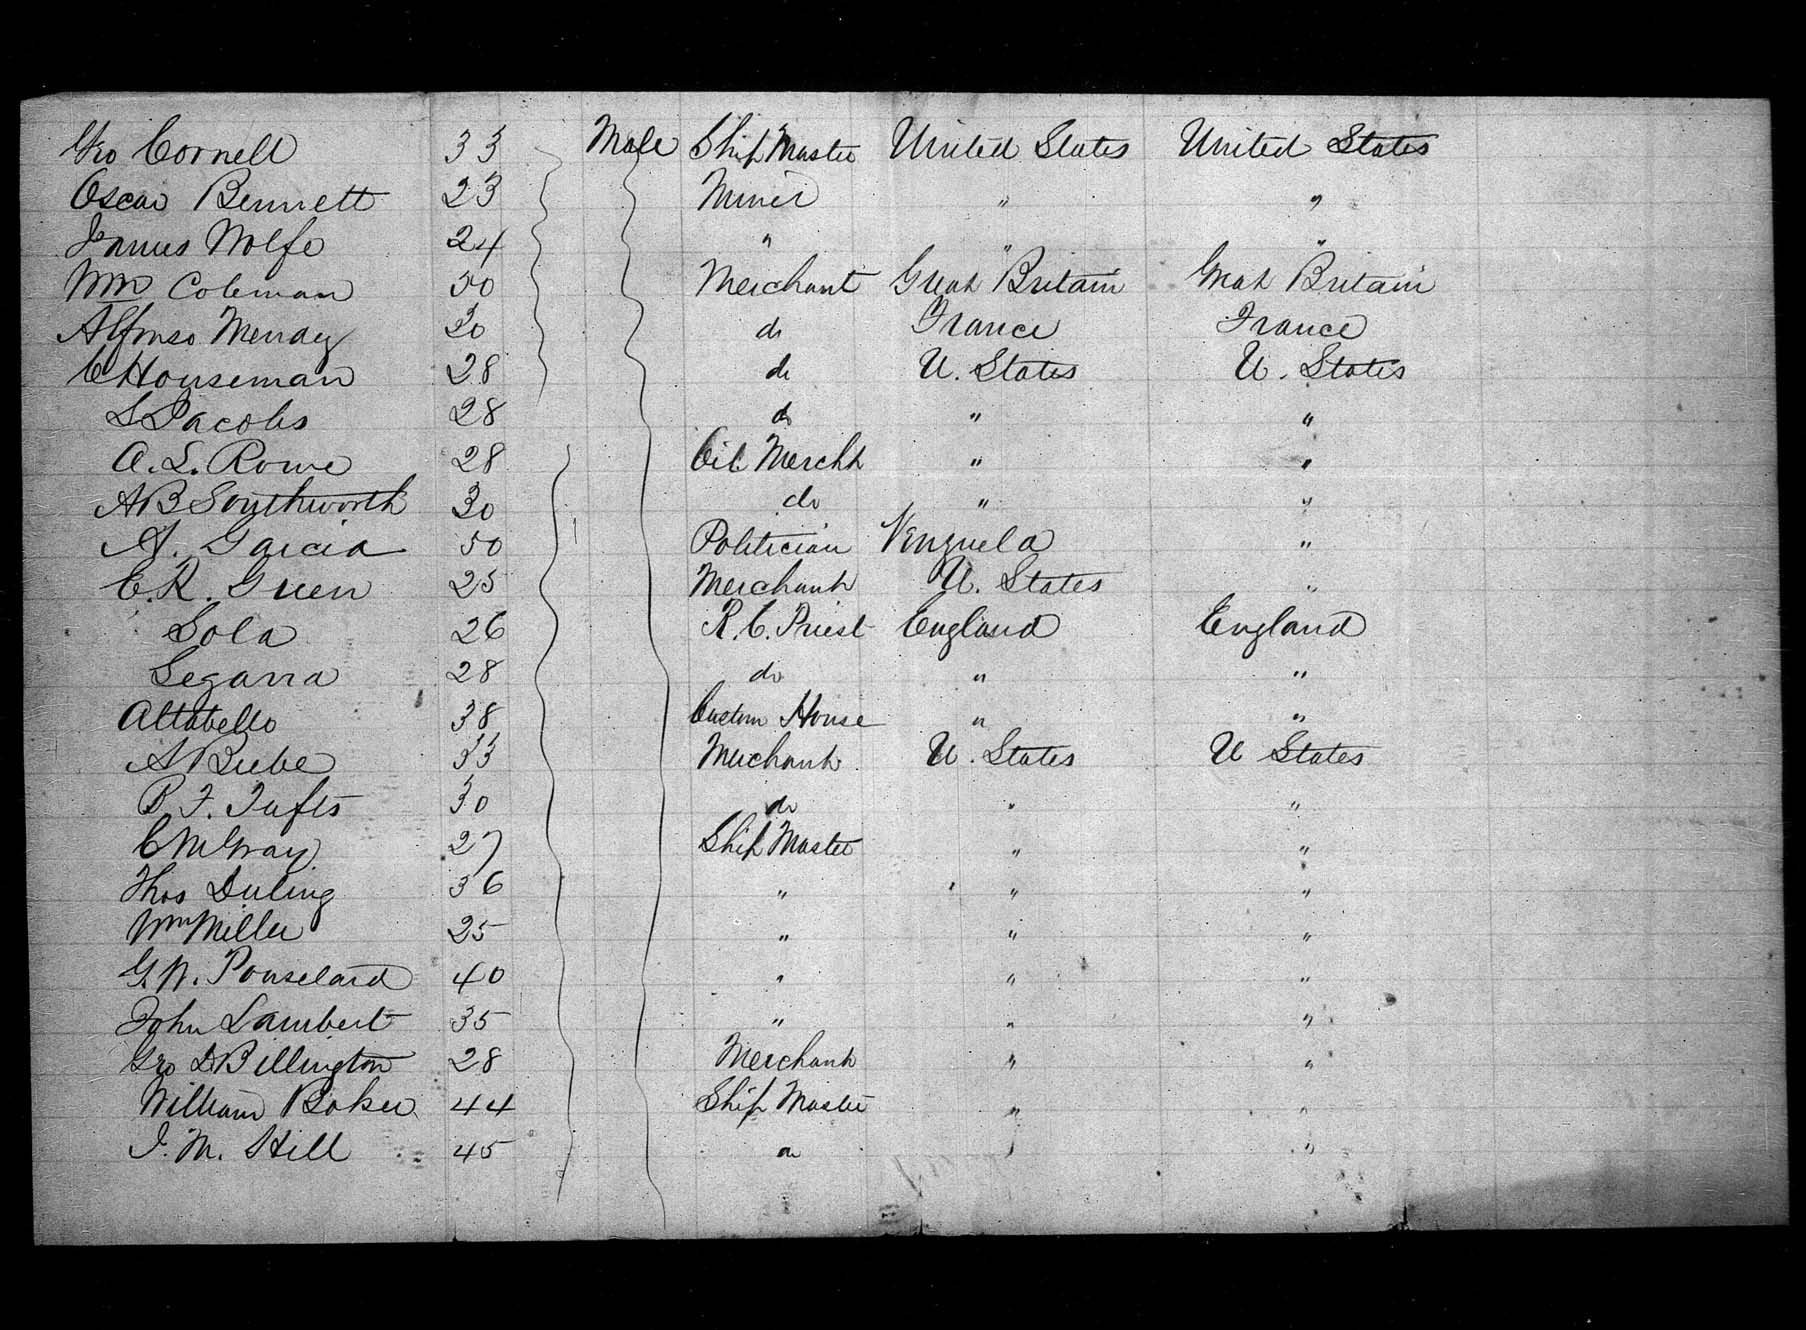 Geo Cornell 33 Male Ship Master United States United States
Oscar Bennett 23 Miner " "
James Wolfe 24 " " "
Wm Coleman 50 Merchant Great Britain Great Britain
Alfonso 30 do France France
C Houseman 28 do U. States U. States
S Jacobs 28 do " "
A. L. Rowe 28 Oil Mercht " "
A B Southworth 30 do " "
A. Garcia 50 Politician Venzuela "
C. R. Green 25 Merchant U. States "
Sola 26 R. C. Priest England England
Segarra 28 do " "
Altabello 38 Custom House " "
A Beebe 33 Merchant U. States U States
B F. Tufts 30 do " "
C M Gray 27 Ship Master " "
Thos Duling 36 " " "
Wm Miller 25 " " "
G. W. Pouseland 40 " " "
John Lambert 35 " " "
Geo D Billington 28 Merchant " "
William Baker 44 Ship Master " "
J. M. Hill 45 " " "